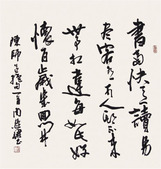 書當快意讀易
盡客有可人期不來
世事相違每如此好
懷百歲幾回開
陳師道 一首 周慧珺